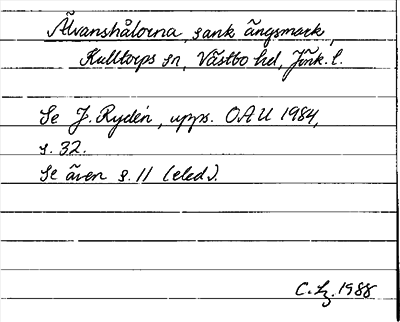 Älvanshålorna, sank ängsmark,
Kulltorps sn, Västbo hd, Jönk. l.
Se J. Rydén, upps. OAU 1984,
s. 32.
Se även s. 11 (eled).
C. Lg. 1988